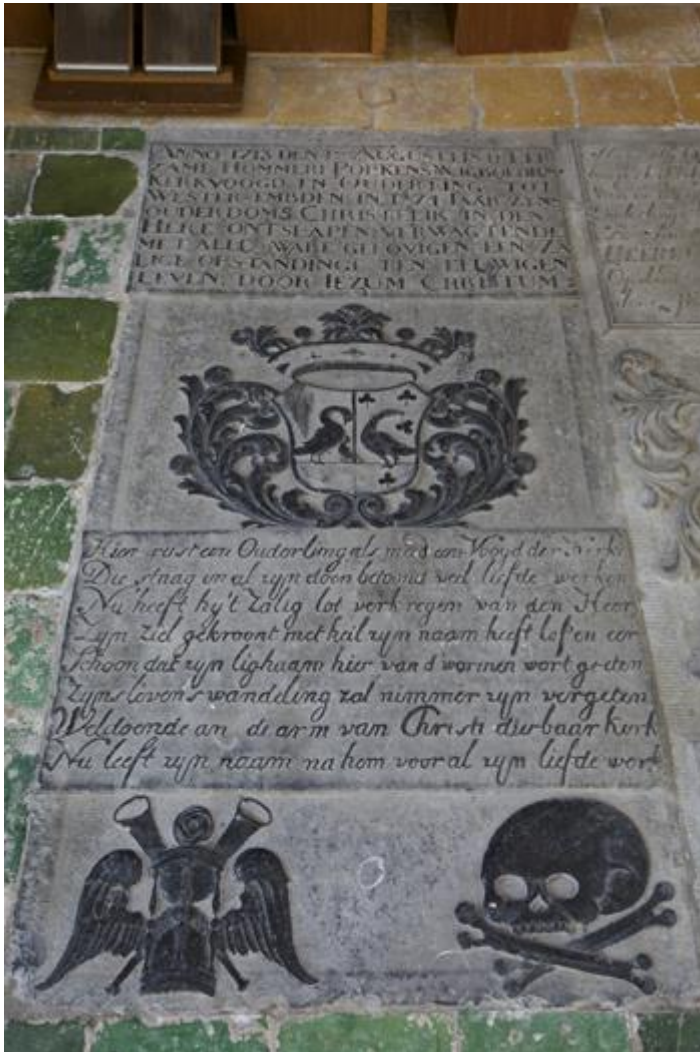 ANNO 1713 DEN AUGUSTI IS D' EER
ZAME HOMMERT POPKENS WIGBOLDUS
KERKVOOGD EN OUDERLING TOT
WESTER-EMBDEN IN T 74 IAAR ZYNS
OUDERDOMS CHRISTELIK IN DEN
HERE ONTSLAPEN VERWAGTENDE
MET ALLE WARE GELOVIGEN EEN ZA
LIGE OPSTANDINGE TEN EEUWIGEN
LEVEN. DOOR IEZUM CHRISTUM
Hier rust een Ouderling als med een Voogd der Kerke
Die staag in al zyn doen betoond veel liefde werken
Nu heeft hy't Zalig lot verkregen van den Heer
Zyn ziel gekroont met heil zyn naam heeft lof en eer
Schoon dat zyn lighaam hier van d wormen wort gegeten
Zyns levens wandeling zal nimmer zyn vergeten
Weldoende an de arm van Christi dierbaar kerk
Nu leeft zyn naam na hem voor al zyn liefde werk